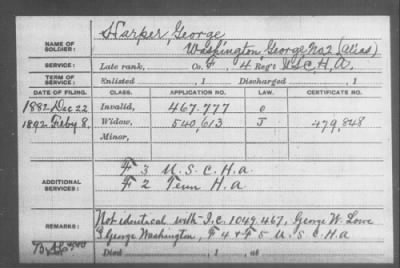 Harper, George
NAME OF SOLDIER: Washington, George No 2 (alias)
SERVICE: Late rank, Co. F, 4 Reg't U.S.C.H.A.
TERM OF SERVICE: Enlisted , 1 Discharged , 1
DATE OF FILING. CLASS. APPLICATION NO. LAW. CERTIFICATE NO.
1882 Dec 22 Invalid, 467.777 o
1892 Feby 8. Widow, 540,613 J 479,848
Minor,
ADDITIONAL SERVICES: F 3 U.S.C.H.a
F 2 Tenn H.a
REMARKS: Not identical with I.C. 1049.467, George W. Lowe
George Washington, F 4 & F 5 U.S.C.H.A
Died , 1 , at